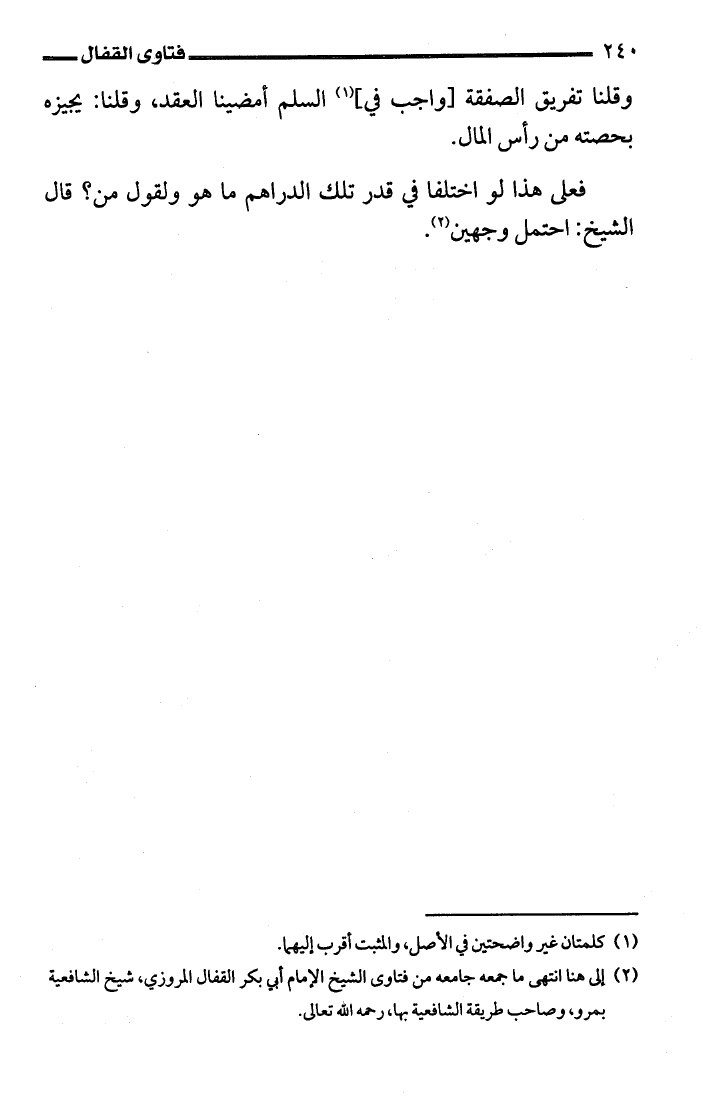 ٢٤٠ فتاوى القفال
وقلنا تفريق الصفقة [واجب في](١) السلم أمضينا العقد، وقلنا: يجيزه
بحصته من رأس المال.
فعلى هذا لو اختلفا في قدر تلك الدراهم ما هو ولقول من؟ قال
الشيخ: احتمل وجهين(٢).
(١) كلمتان غير واضحتين في الأصل، والمثبت أقرب إليهما.
(٢) إلى هنا انتهى ما جمعه جامعه من فتاوى الشيخ الإمام أبي بكر القفال المروزي، شيخ الشافعية
بمرو، وصاحب طريقة الشافعية بها، رحمه الله تعالى.